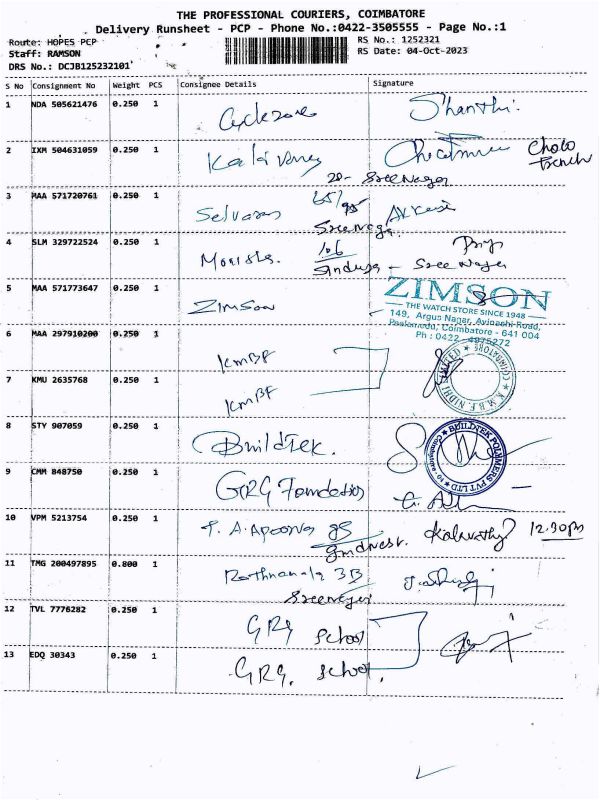 THE PROFESSIONAL COURIERS, COIMBATORE
Delivery Runsheet - PCP - Phone No.:0422-3505555 - Page No.:1
Route: HOPES PCP
RS No.: 1252321
Staff: RAMSON
RS Date: 04-Oct-2023
DRS No.: DCJB125232101
S No Consignment No Weight PCS Consignee Details Signature
1 NDA 505621476 0.250 1 Shanthi.
2 IXM 504631059 0.250 1
20- Sree Nagar
3 MAA 571720761 0.250 1 Selvaraj 65/95
4 SLM 329722524 0.250 1 106
Sree Nagar
5 MAA 571773647 0.250 1 Zimson
ZIMSON
THE WATCH STORE SINCE 1948
149, Argus Nagar, Avinashi Road,
Peelamedu, Coimbatore - 641 004
Ph : 0422 - 4975272
6 MAA 297910200 0.250 1 KMBF
K.M.B.F. NIDHI LIMITED
7 KMU 2635768 0.250 1 KMBF
8 STY 907059 0.250 1 BuildTek.
BUILDTEK POLYMERS PVT LTD
9 CMM 848750 0.250 1 GRG Foundation
10 VPM 5213754 0.250 1 T. A. Apoorva 12.30pm
11 TMG 200497895 0.800 1 Rathnamala 3B
12 TVL 7776282 0.250 1 GRG School
13 EDQ 30343 0.250 1 GRG. School.